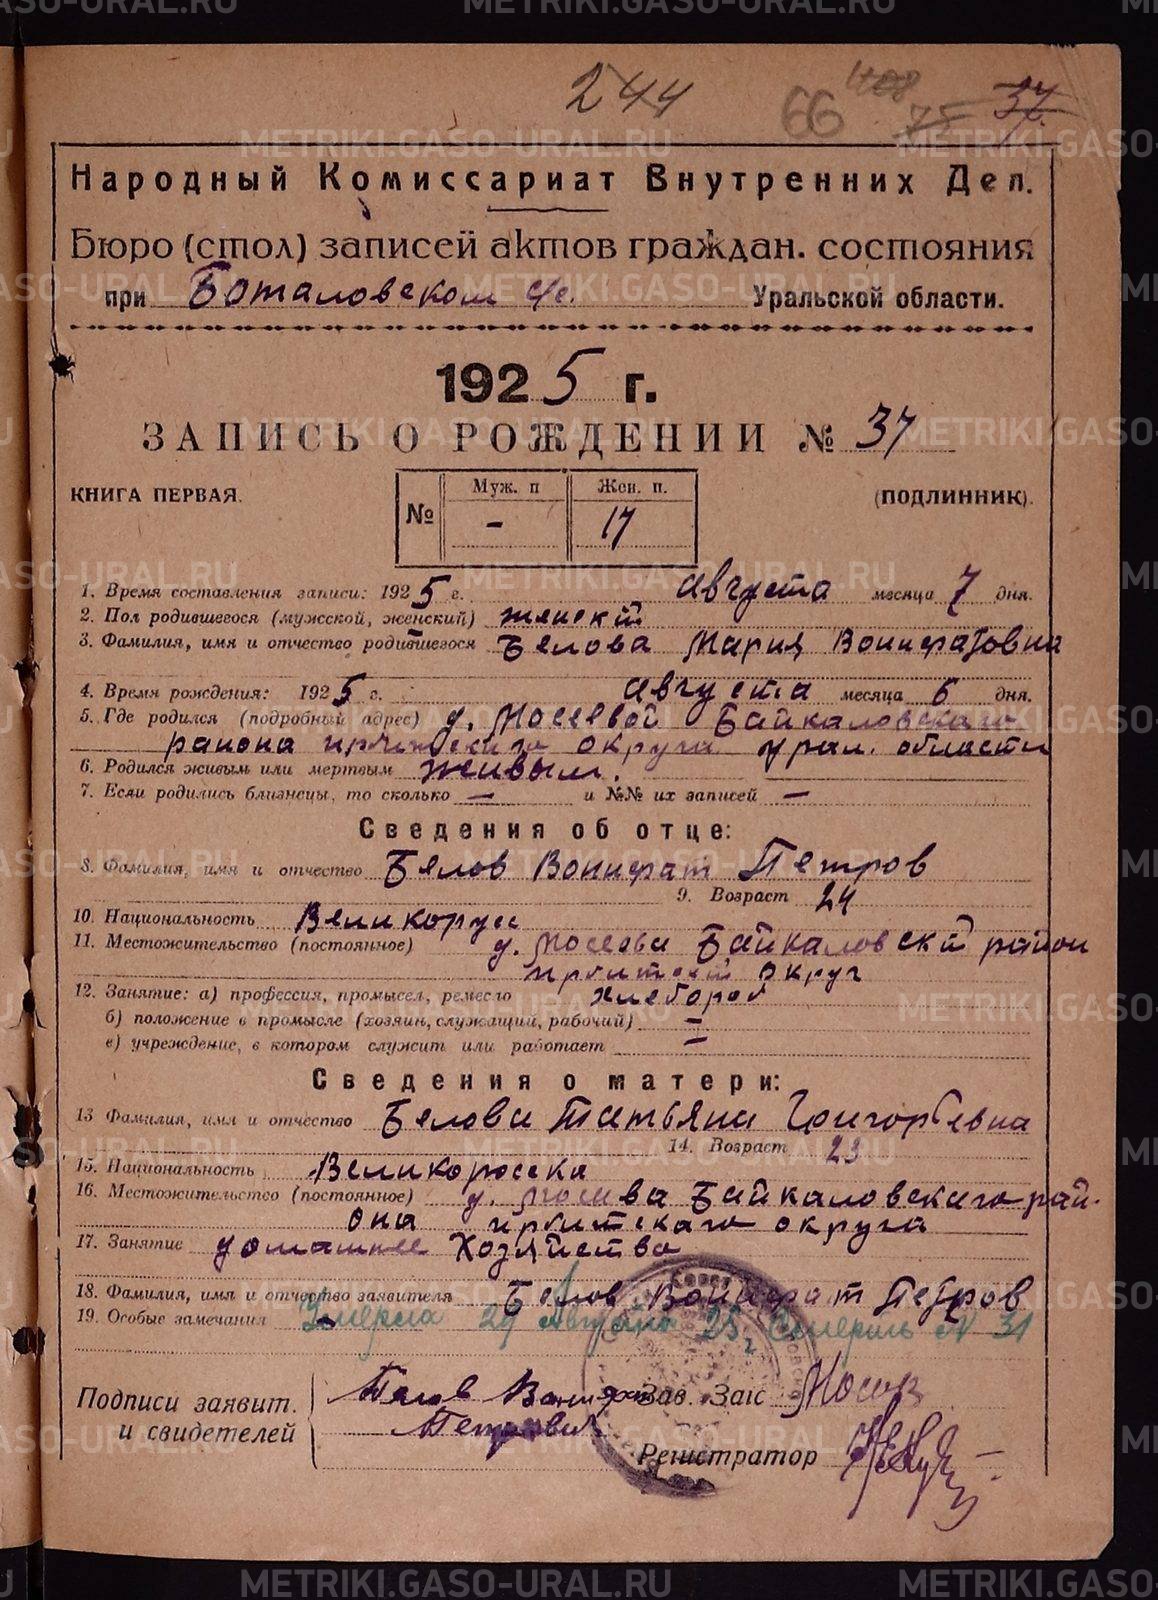 244 66 408 75 37.
Народный Комиссариат Внутренних Дел.
Бюро (стол) записей актов граждан. состояния
при Боталовском с/с. Уральской области.
1925 г.
ЗАПИСЬ О РОЖДЕНИИ № 37
КНИГА ПЕРВАЯ. (ПОДЛИННИК).
№ Муж. п Жен. п.
- 17
1. Время составления записи: 1925 г. Августа месяца 7 дня.
2. Пол родившегося (мужской, женский) женский
3. Фамилия, имя и отчество родившегося Белова Мария Вонифатовна
4. Время рождения: 1925 г. Августа месяца 6 дня.
5. Где родился (подробный адрес) д. Мосеевой Байкаловского
района ирбитского округа урал. области
6. Родился живым или мертвым живым.
7. Если родились близнецы, то сколько — и №№ их записей —
Сведения об отце:
8. Фамилия, имя и отчество Белов Вонифат Петров
9. Возраст 24
10. Национальность Великорусс
11. Местожительство (постоянное) д. Мосеева Байкаловский район
ирбитский округ
12. Занятие: а) профессия, промысел, ремесло хлебороб
б) положение в промысле (хозяин, служащий, рабочий) —
в) учреждение, в котором служит или работает —
Сведения о матери:
13 Фамилия, имя и отчество Белова Татьяна Григорьевна
14. Возраст 23
15. Национальность Великоросска
16. Местожительство (постоянное) д. Мосеева Байкаловского рай-
она ирбитского округа
17. Занятие домашнее Хозяйство
18. Фамилия, имя и отчество заявителя Белов Вонифат Петров
19. Особые замечания Умерла 29 Августа 25 г. Смерть № 31
Подписи заявит. и свидетелей Белов Вонифат Зав. Загс Мосов
Петрович
Регистратор
METRIKI.GASO-URAL.RU